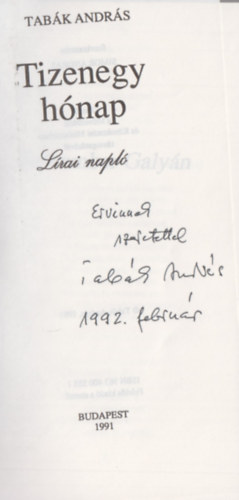 TABÁK ANDRÁS
Tizenegy
hónap
Lírai napló
Ervinnek
szeretettel
Tabák András
1992. február
BUDAPEST
1991